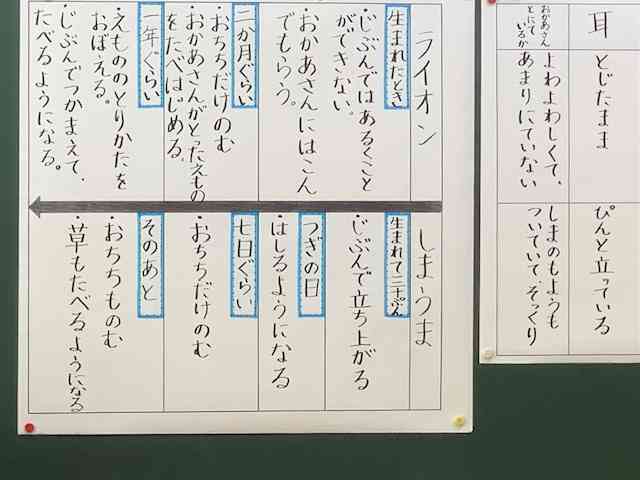 耳
とじたまま
ぴんと立っている
おかあさん
とにて
いるか
よわよわしくて、
あまりにていない
しまのもようも
ついていて、そっくり
ライオン
生まれたとき
・じぶんではあるくこと
ができない。
・おかあさんにはこん
でもらう。
二か月ぐらい
・おちちだけのむ
・おかあさんがとったえもの
をたべはじめる。
一年ぐらい
・えもののとりかたを
おぼえる。
・じぶんでつかまえて、
たべるようになる。
しまうま
生まれて三十ぷん
・じぶんで立ち上がる
つぎの日
・はしるようになる
七日ぐらい
・おちちだけのむ
そのあと
・おちちものむ
・草もたべるようになる